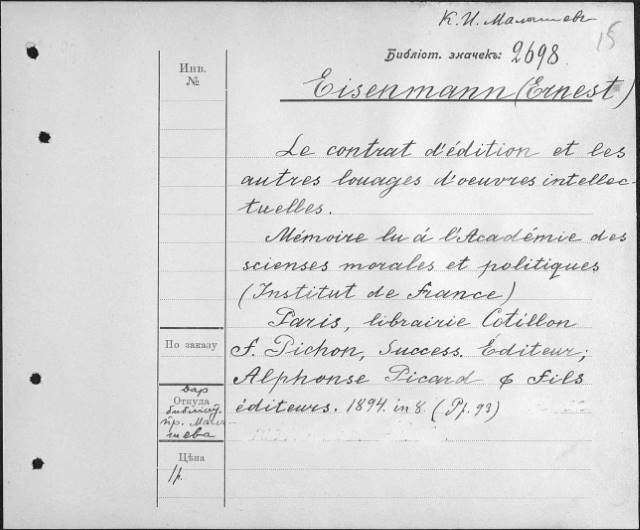 К. И. Малышевъ
15
Библіот. значекъ: 2698.
Инв.
№
Eisenmann (Ernest)
Le contrat d'édition et les
autres louages d'oeuvres intellec-
tuelles.
Mémoire lu á l'Académie des
scienses morales et politiques
(Institut de France)
Paris, librairie Cotillon
По заказу
F. Pichon, Success. Éditeur;
Alphonse Picard & Fils
éditeurs. 1894. in 8. (Pf. 93)
Даръ
Откуда
библіот.
пр. Малы-
шева
Цѣна
1 р.